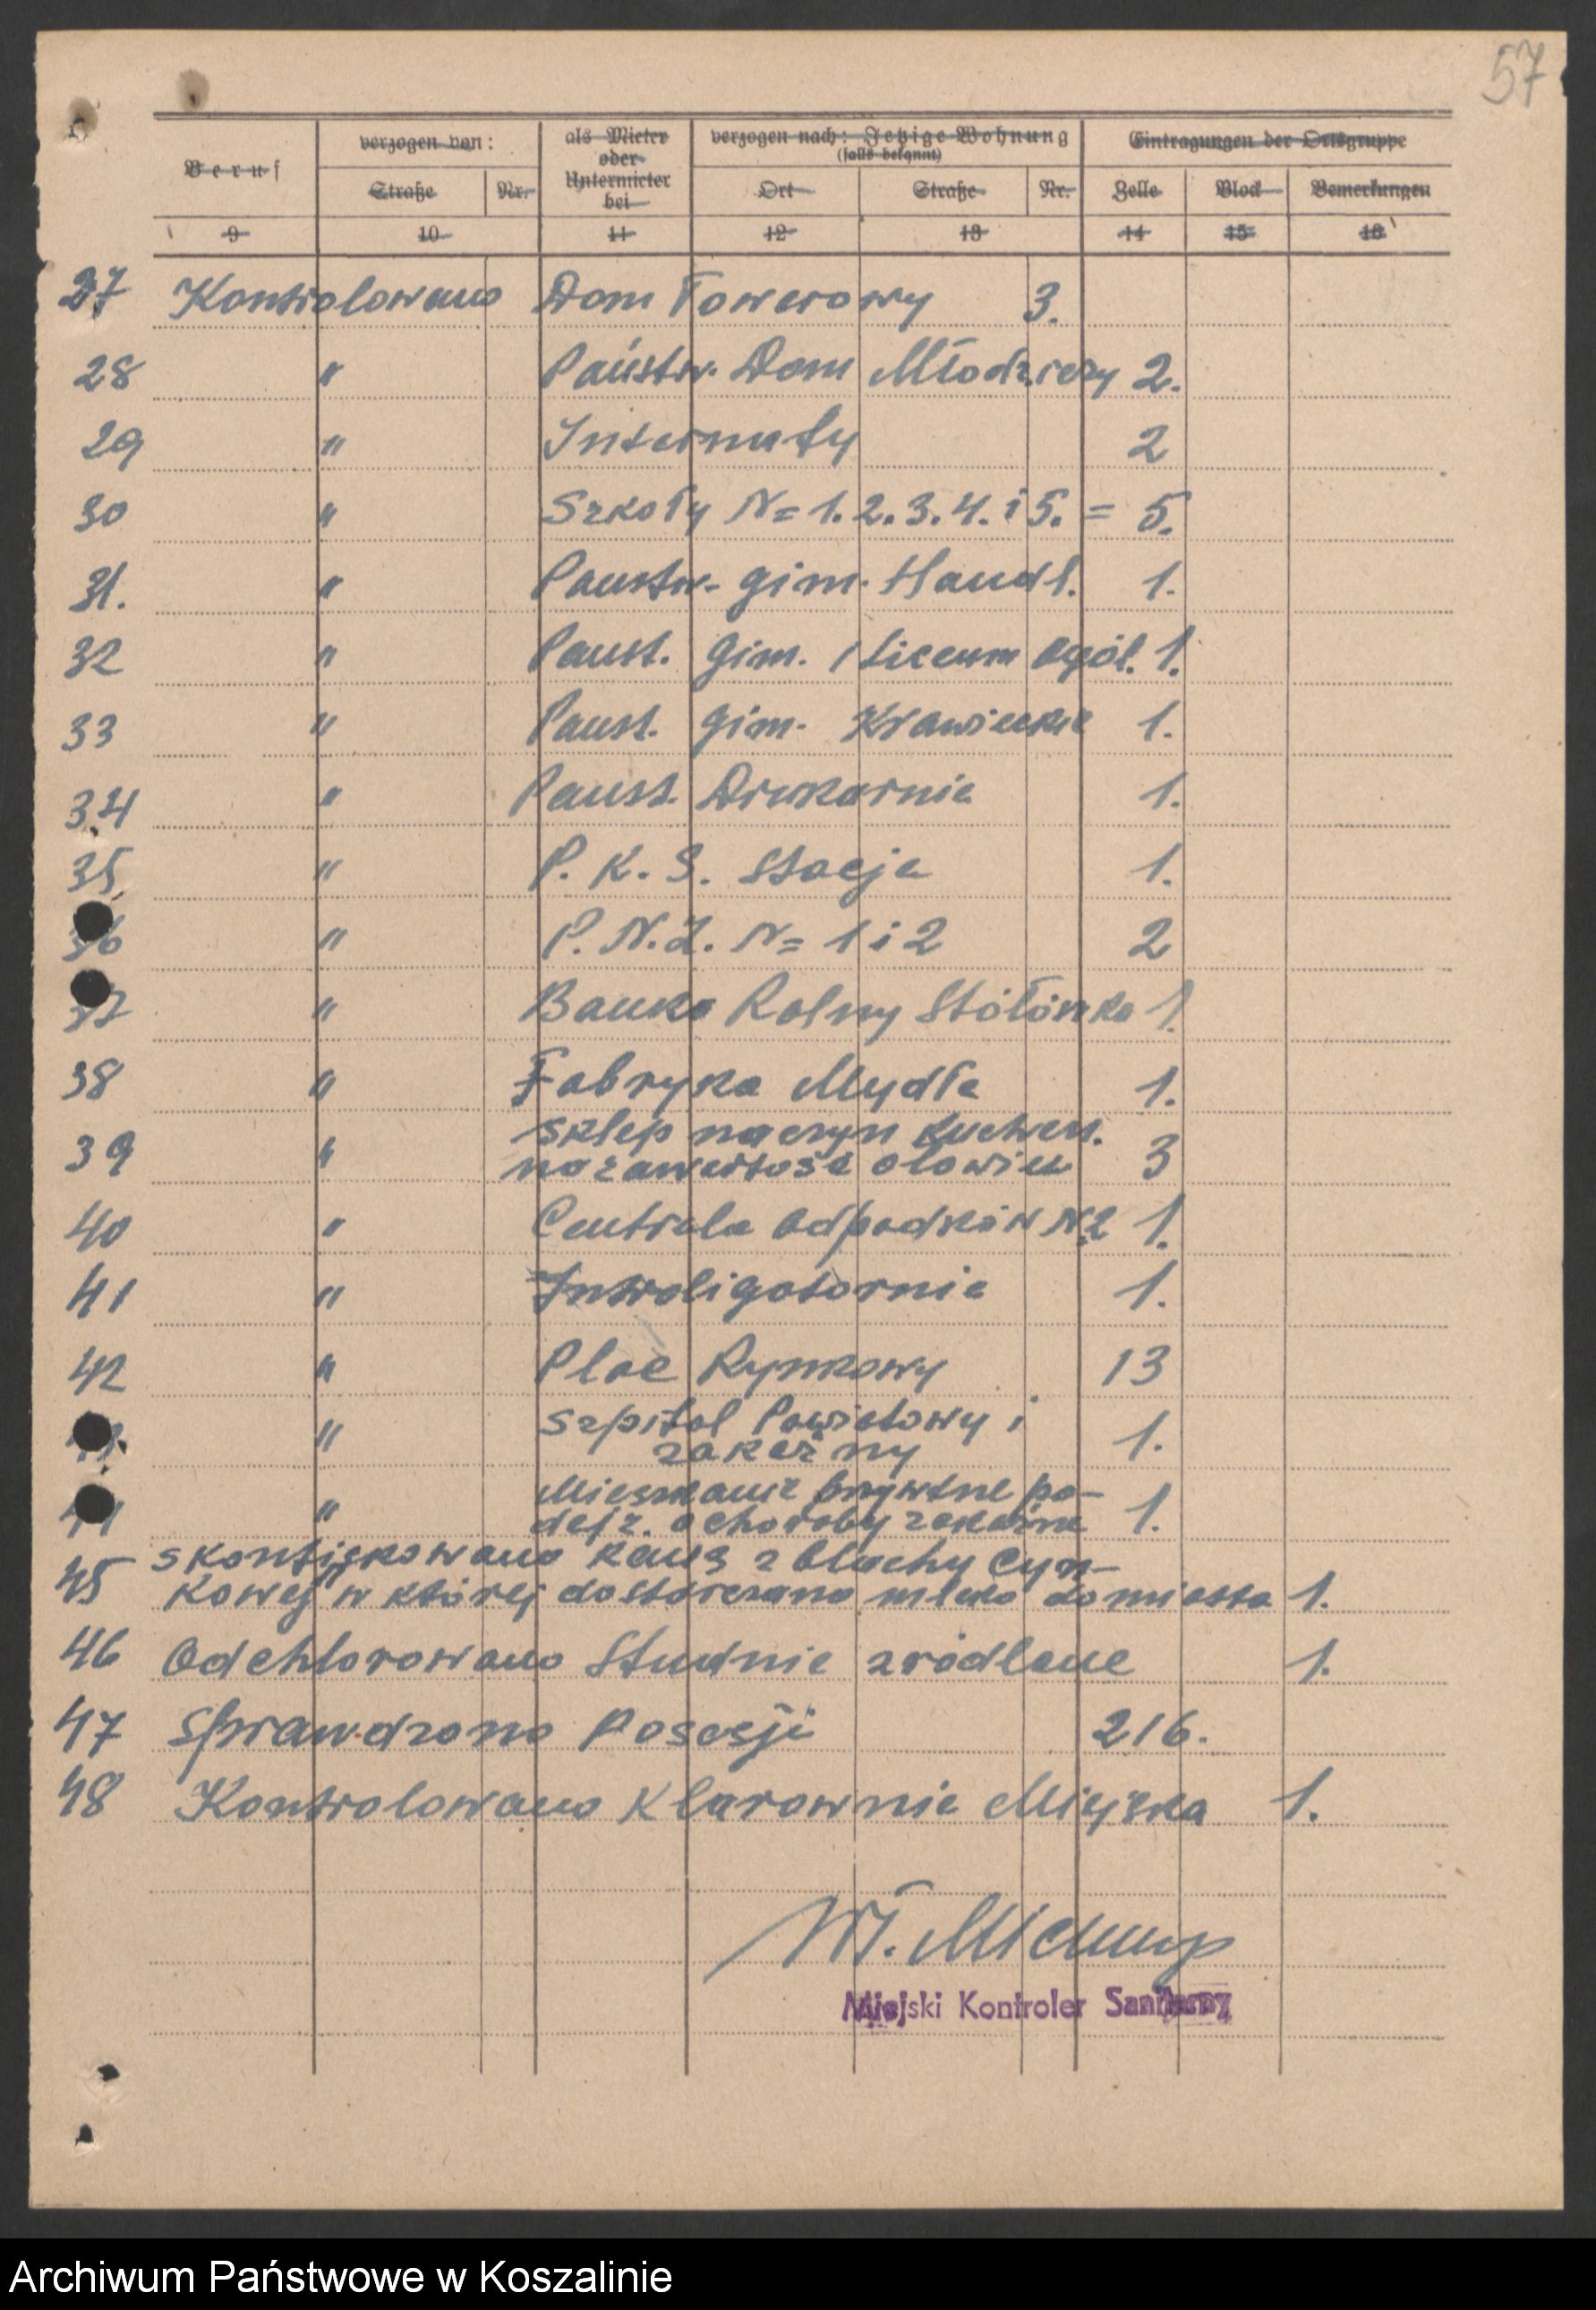 57
Beruf
verzogen von:
als Mieter oder Untermieter bei
verzogen nach: Jetzige Wohnung
(falls bekannt)
Eintragungen der Ortsgruppe
Straße Nr. Ort Straße Nr. Zelle Block Bemerkungen
9 10 11 12 13 14 15 16
27 Kontrolowano Dom Towarowy 3.
28 " Państw. Dom Młodzieży 2.
29 " Internaty 2
30 " Szkoły N= 1. 2. 3. 4. i 5. = 5.
31. " Państw. gim. Handl. 1.
32 " Państ. gim. i Liceum Ogól. 1.
33 " Państ. gim. Krawieckie 1.
34 " Państ. Drukarnia 1.
35. " P. K. S. Stacja 1.
36 " P. N. Z. N= 1 i 2 2
37 " Banko Rolny Stołówka 1.
38 " Fabryka Mydła 1.
39 " Sklep naczyn kuchen.
na zawartość ołowiu 3
40 " Centrala Odpadków N2 1.
41 " Introligatornia 1.
42 " Plac Rynkowy 13
" Szpital Powiatowy i
zakaźny 1.
" Mieszkanie prywtne po-
dejrz. o choroby zakaźne 1.
45 Skonfiskowano kanę z blachy cyn-
kowej w której dostarczano mleko do miasta 1.
46 Odchlorowano Studnie zródlane 1.
47 Sprawdzono Posesji 216.
48 Kontrolowano Klarownie Miejska 1.
Miejski Kontroler Sanitarny
Archiwum Państwowe w Koszalinie